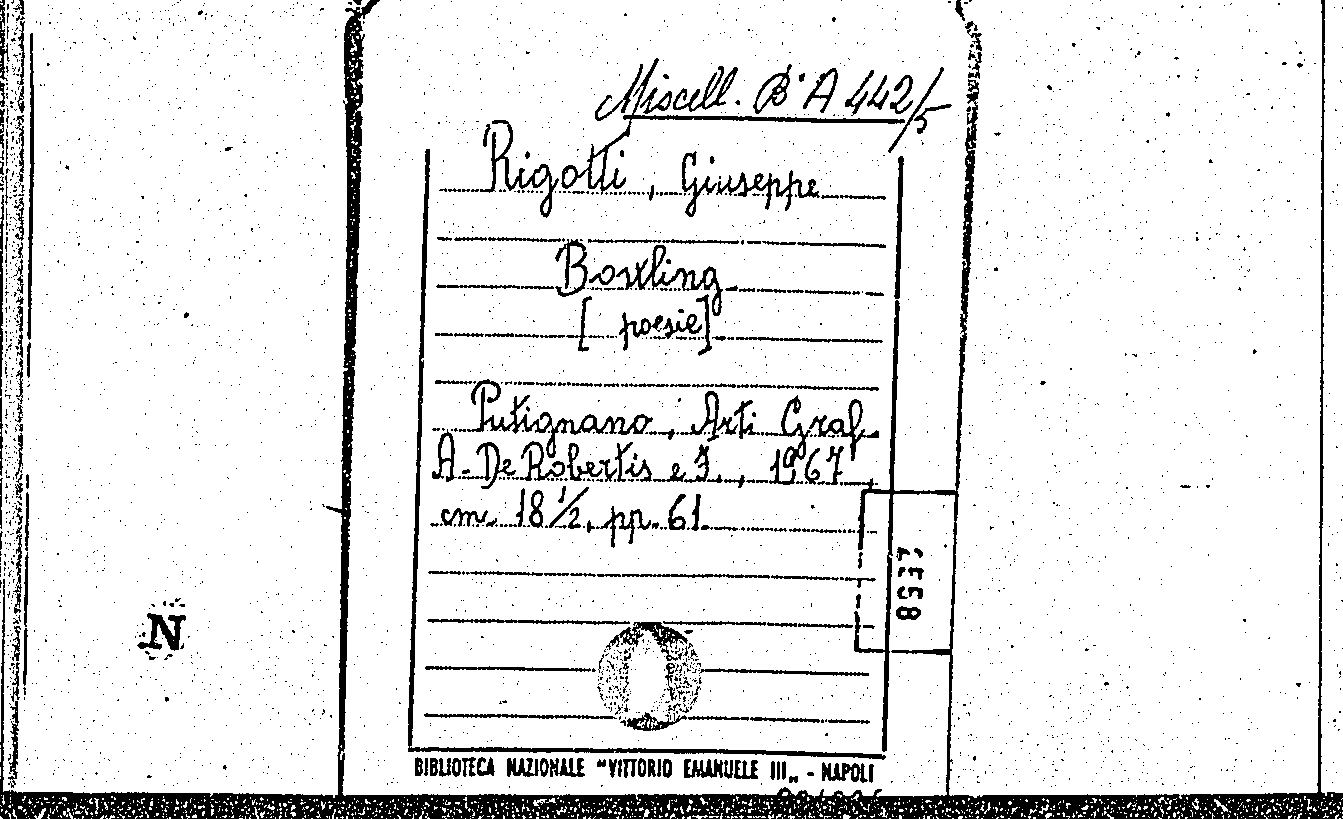 Miscell. B. A 442/5
Rigotti, Giuseppe
Bowling
[poesie]
Putignano, Arti Graf.
A. De Robertis e F., 1967,
cm. 18 1/2, pp. 61.
8537
N
BIBLIOTECA NAZIONALE "VITTORIO EMANUELE III„ - NAPOLI